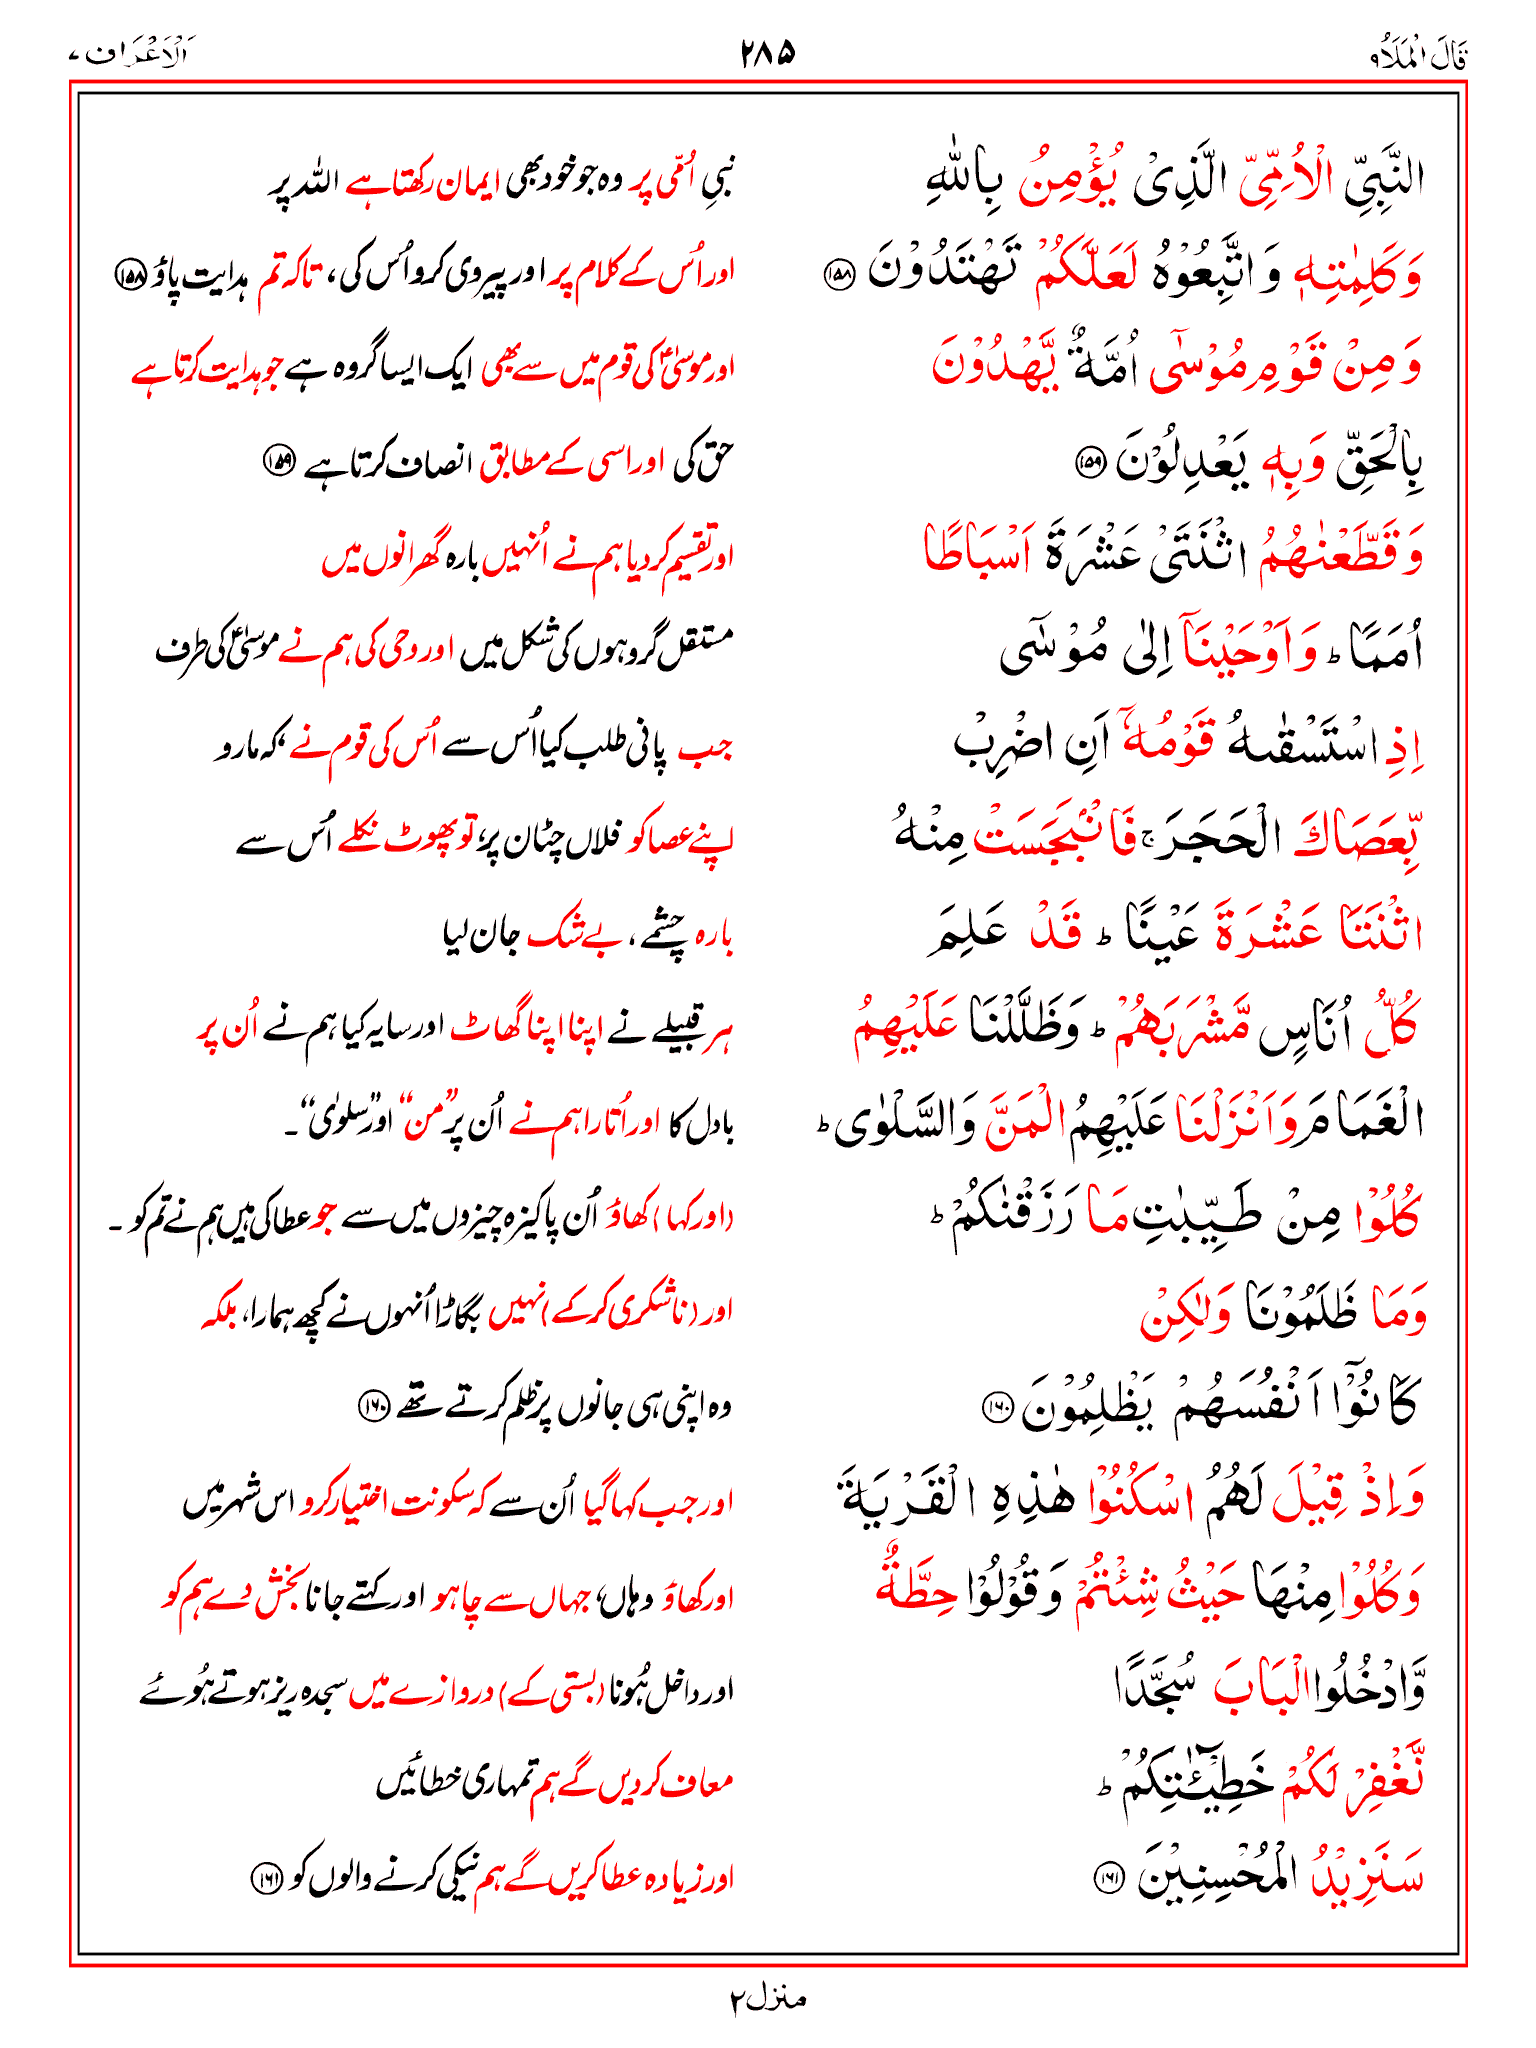 قَالَ الْمَلَاُ ٩
٢٨٥
اَلْاَعْرَاف ٧
النَّبِيِّ الْاُمِّيِّ الَّذِىْ يُؤْمِنُ بِاللّٰهِ
نبیِ اُمّی پر وہ جو خود بھی ایمان رکھتا ہے اللہ پر
وَكَلِمٰتِهٖ وَاتَّبِعُوْهُ لَعَلَّكُمْ تَهْتَدُوْنَ ۝١٥٨
اور اُس کے کلام پر اور پیروی کرو اُس کی، تاکہ تم ہدایت پاؤ ۝١٥٨
وَمِنْ قَوْمِ مُوْسٰٓى اُمَّةٌ يَّهْدُوْنَ
اور موسیٰؑ کی قوم میں سے بھی ایک ایسا گروہ ہے جو ہدایت کرتا ہے
بِالْحَقِّ وَبِهٖ يَعْدِلُوْنَ ۝١٥٩
حق کی اور اسی کے مطابق انصاف کرتا ہے ۝١٥٩
وَقَطَّعْنٰهُمُ اثْنَتَىْ عَشْرَةَ اَسْبَاطًا
اور تقسیم کر دیا ہم نے اُنہیں بارہ گھرانوں میں
اُمَمًا ؕ وَاَوْحَيْنَاۤ اِلٰى مُوْسٰٓى
مستقل گروہوں کی شکل میں اور وحی کی ہم نے موسیٰؑ کی طرف
اِذِ اسْتَسْقٰىهُ قَوْمُهٗۤ اَنِ اضْرِبْ
جب پانی طلب کیا اُس سے اُس کی قوم نے ‘ کہ مارو
بِّعَصَاكَ الْحَجَرَ ۚ فَانْۢبَجَسَتْ مِنْهُ
اپنے عصا کو فلاں چٹان پر؛ تو پھوٹ نکلے اُس سے
اثْنَتَا عَشْرَةَ عَيْنًا ؕ قَدْ عَلِمَ
بارہ چشمے ، بے شک جان لیا
كُلُّ اُنَاسٍ مَّشْرَبَهُمْ ؕ وَظَلَّلْنَا عَلَيْهِمُ
ہر قبیلے نے اپنا اپنا گھاٹ اور سایہ کیا ہم نے اُن پر
الْغَمَامَ وَاَنْزَلْنَا عَلَيْهِمُ الْمَنَّ وَالسَّلْوٰى ؕ
بادل کا اور اُتارا ہم نے اُن پر ”من“ اور ”سلویٰ“ ۔
كُلُوْا مِنْ طَيِّبٰتِ مَا رَزَقْنٰكُمْ ؕ
(اور کہا) کھاؤ اُن پاکیزہ چیزوں میں سے جو عطا کی ہیں ہم نے تم کو ۔
وَمَا ظَلَمُوْنَا وَلٰكِنْ
اور (ناشکری کر کے) نہیں بگاڑا اُنہوں نے کچھ ہمارا، بلکہ
كَانُوْۤا اَنْفُسَهُمْ يَظْلِمُوْنَ ۝١٦٠
وہ اپنی ہی جانوں پر ظلم کرتے تھے ۝١٦٠
وَاِذْ قِيْلَ لَهُمُ اسْكُنُوْا هٰذِهِ الْقَرْيَةَ
اور جب کہا گیا اُن سے کہ سکونت اختیار کرو اس شہر میں
وَكُلُوْا مِنْهَا حَيْثُ شِئْتُمْ وَقُوْلُوْا حِطَّةٌ
اور کھاؤ وہاں؛ جہاں سے چاہو اور کہتے جانا بخش دے ہم کو
وَّادْخُلُوا الْبَابَ سُجَّدًا
اور داخل ہُونا (بستی کے) دروازے میں سجدہ ریز ہوتے ہُوئے
نَّغْفِرْ لَكُمْ خَطِيْٓـٰٔتِكُمْ ؕ
معاف کر دیں گے ہم تمہاری خطائیں
سَنَزِيْدُ الْمُحْسِنِيْنَ ۝١٦١
اور زیادہ عطا کریں گے ہم نیکی کرنے والوں کو ۝١٦١
منزل ٢